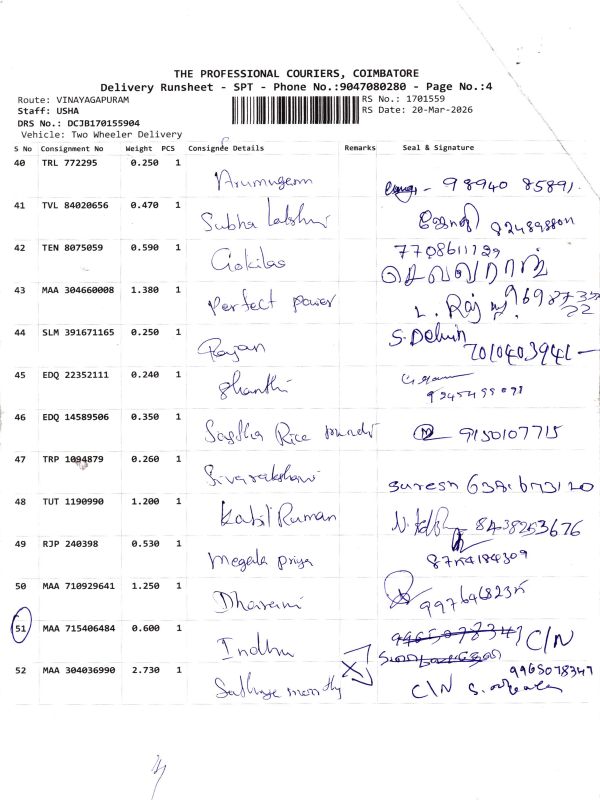 THE PROFESSIONAL COURIERS, COIMBATORE
Delivery Runsheet - SPT - Phone No.:9047080280 - Page No.:4
Route: VINAYAGAPURAM RS No.: 1701559
Staff: USHA RS Date: 20-Mar-2026
DRS No.: DCJB170155904
Vehicle: Two Wheeler Delivery
S No Consignment No Weight PCS Consignee Details Remarks Seal & Signature
40 TRL 772295 0.250 1
Arumugam - 98940 85891.
41 TVL 84020656 0.470 1
Subha lakshmi
42 TEN 8075059 0.590 1 7708611729
Gokilas செல்வராஜ்
43 MAA 304660008 1.380 1
Perfect power L. Raj
44 SLM 391671165 0.250 1 S. Delwin
Rajan 7010403941
45 EDQ 22352111 0.240 1
Shanthi
46 EDQ 14589506 0.350 1
Sastha Rice mundi 9150107715
47 TRP 1094879 0.260 1
Sivarakshani Suresh
48 TUT 1190990 1.200 1
Kabil Ruman 8438253676
49 RJP 240398 0.530 1
Megala priya 8754184309
50 MAA 710929641 1.250 1
Dharani
51 MAA 715406484 0.600 1 9965078347 C/N
Indhu
52 MAA 304036990 2.730 1 9965078347
Sathya C/N